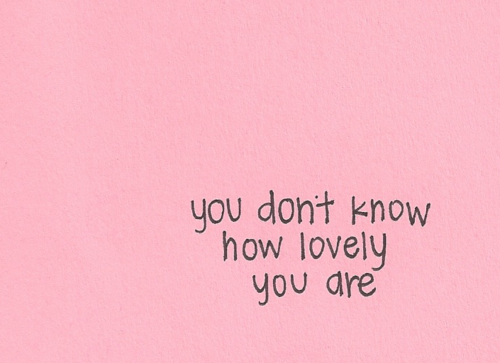 you don't know
how lovely
you are